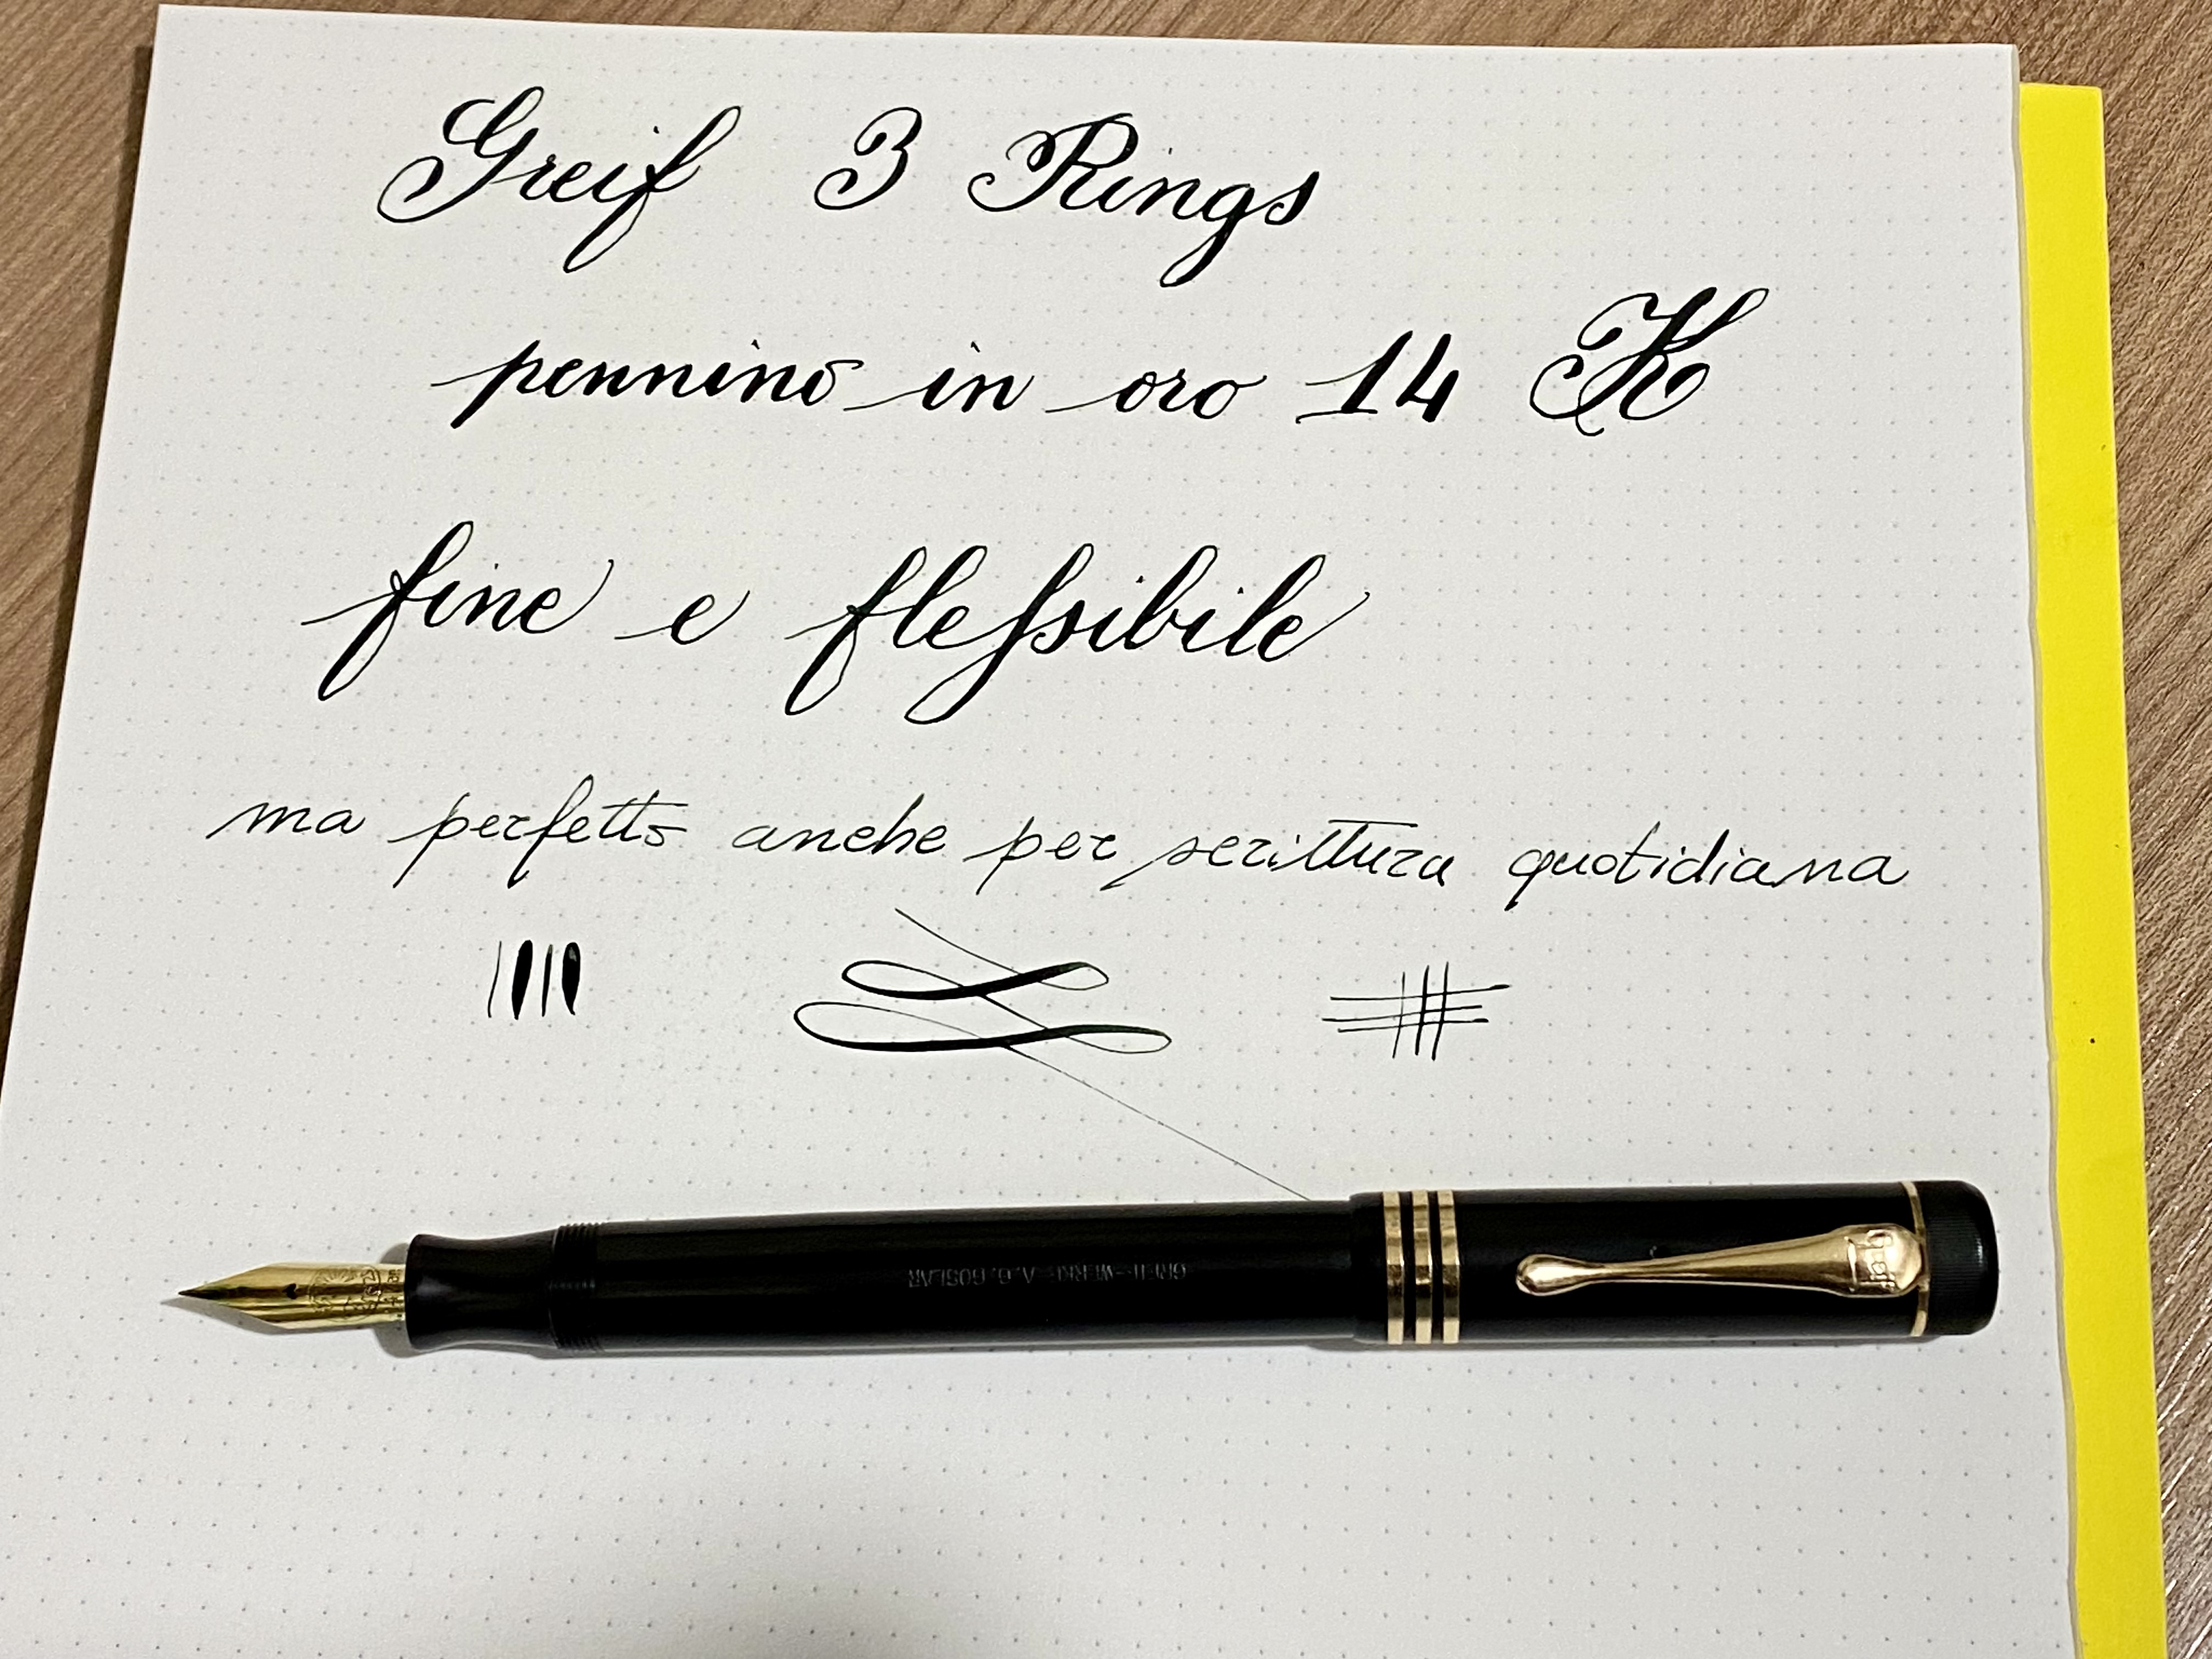 Greif 3 Rings
pennino in oro 14 K
fine e flessibile
ma perfetto anche per scrittura quotidiana
GREIF-WERKE A.G. GOSLAR
greif